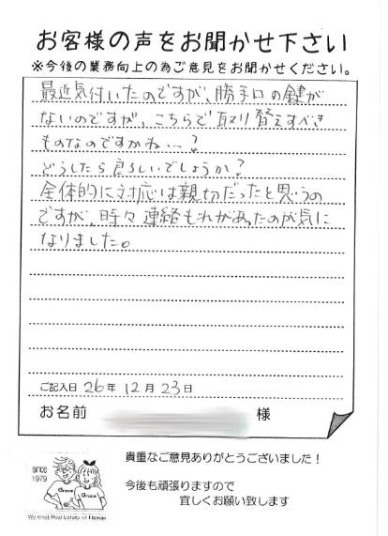 お客様の声をお聞かせ下さい
※今後の業務向上の為ご意見をお聞かせください。
最近気付いたのですが、勝手口の鍵が
ないのですが、こちらで取り替えすべき
ものなのですかね…?
どうしたら良ろしいでしょうか?
全体的に対応は親切だったと思うの
ですが、時々連絡もれがあったのが気に
なりました。
ご記入日 26年 12月 23日
お名前 様
貴重なご意見ありがとうございました!
since
1979
今後も頑張りますので
宜しくお願い致します